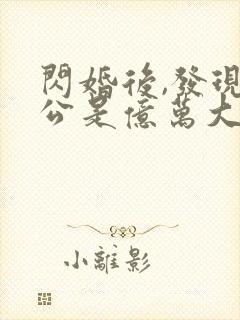 閃婚後,發現
公是億萬大
小離影